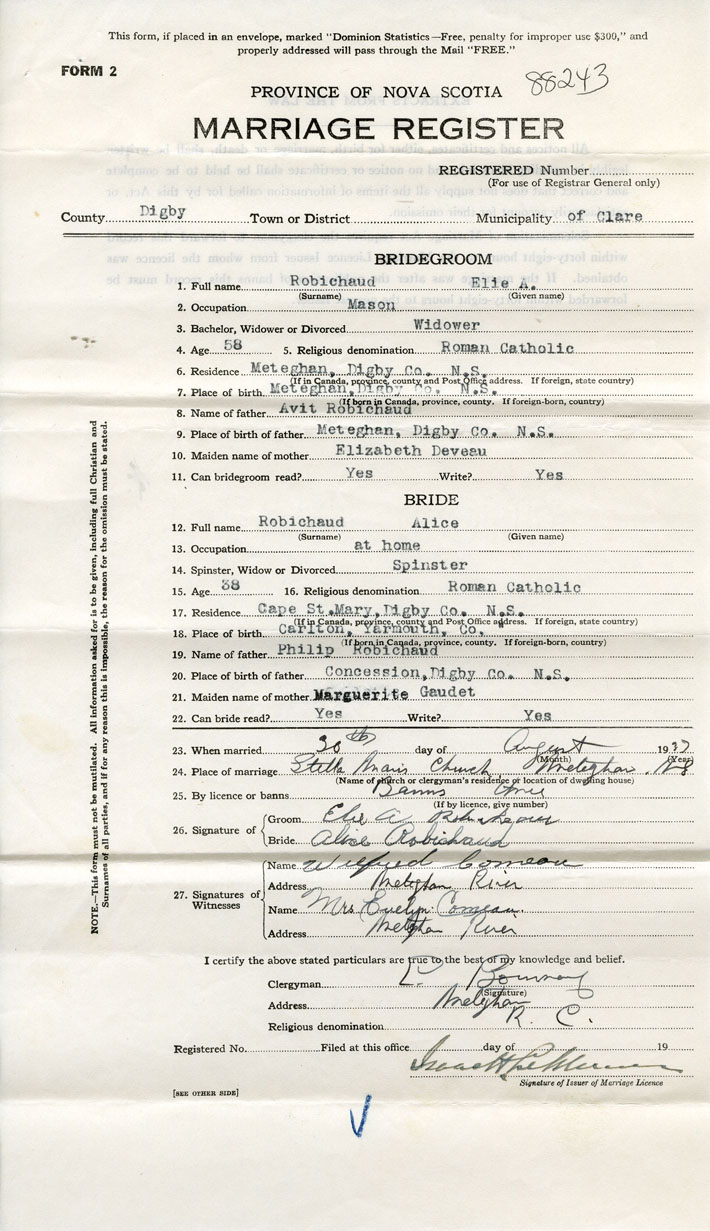 This form, if placed in an envelope, marked "Dominion Statistics—Free, penalty for improper use $300," and
properly addressed will pass through the Mail "FREE."
FORM 2
88243
PROVINCE OF NOVA SCOTIA
MARRIAGE REGISTER
REGISTERED Number
(For use of Registrar General only)
County Digby Town or District Municipality of Clare
BRIDEGROOM
1. Full name Robichaud Elie A.
(Surname) (Given name)
2. Occupation Mason
3. Bachelor, Widower or Divorced Widower
4. Age 58 5. Religious denomination Roman Catholic
6. Residence Meteghan, Digby Co. N.S.
(If in Canada, province, county and Post Office address. If foreign, state country)
7. Place of birth Meteghan, Digby Co. N.S.
(If born in Canada, province, county. If foreign-born, country)
8. Name of father Avit Robichaud
9. Place of birth of father Meteghan, Digby Co. N.S.
10. Maiden name of mother Elizabeth Deveau
11. Can bridegroom read? Yes Write? Yes
BRIDE
12. Full name Robichaud Alice
(Surname) (Given name)
13. Occupation at home
14. Spinster, Widow or Divorced Spinster
15. Age 38 16. Religious denomination Roman Catholic
17. Residence Cape St.Mary, Digby Co. N.S.
(If in Canada, province, county and Post Office address. If foreign, state country)
18. Place of birth Carlton, Yarmouth, Co.
(If born in Canada, province, county. If foreign-born, country)
19. Name of father Philip Robichaud
20. Place of birth of father Concession, Digby Co. N.S.
21. Maiden name of mother Marguerite Gaudet
22. Can bride read? Yes Write? Yes
23. When married 30th day of August 1937
(Month) (Year)
24. Place of marriage Stella Maris Church Meteghan, N.S.
(Name of church or clergyman's residence or location of dwelling house)
25. By licence or banns Banns
(If by licence, give number)
26. Signature of Groom Elie A Robichaud
Bride Alice Robichaud
27. Signatures of Witnesses
Name Wilfred Comeau
Address Meteghan River
Name Mrs Evelyn Comeau.
Address Meteghan River
I certify the above stated particulars are true to the best of my knowledge and belief.
Clergyman
(Signature)
Address Meteghan
Religious denomination R. C.
Registered No. Filed at this office day of 19
Signature of Issuer of Marriage Licence
[SEE OTHER SIDE]
NOTE.—This form must not be mutilated. All information asked for is to be given, including full Christian and
Surnames of all parties, and if for any reason this is impossible, the reason for the omission must be stated.